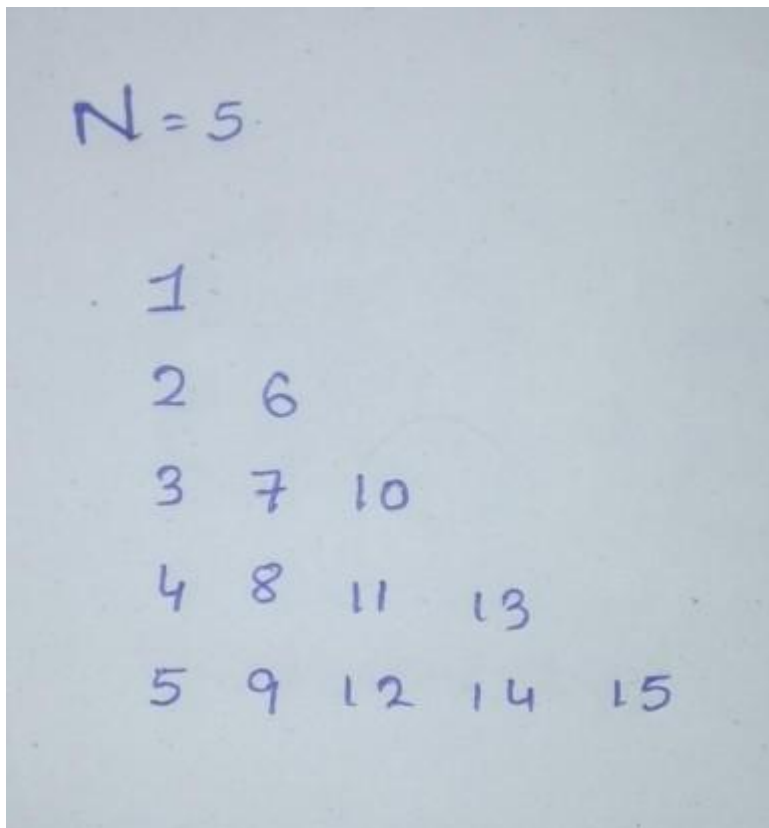 N = 5
1
2 6
3 7 10
4 8 11 13
5 9 12 14 15